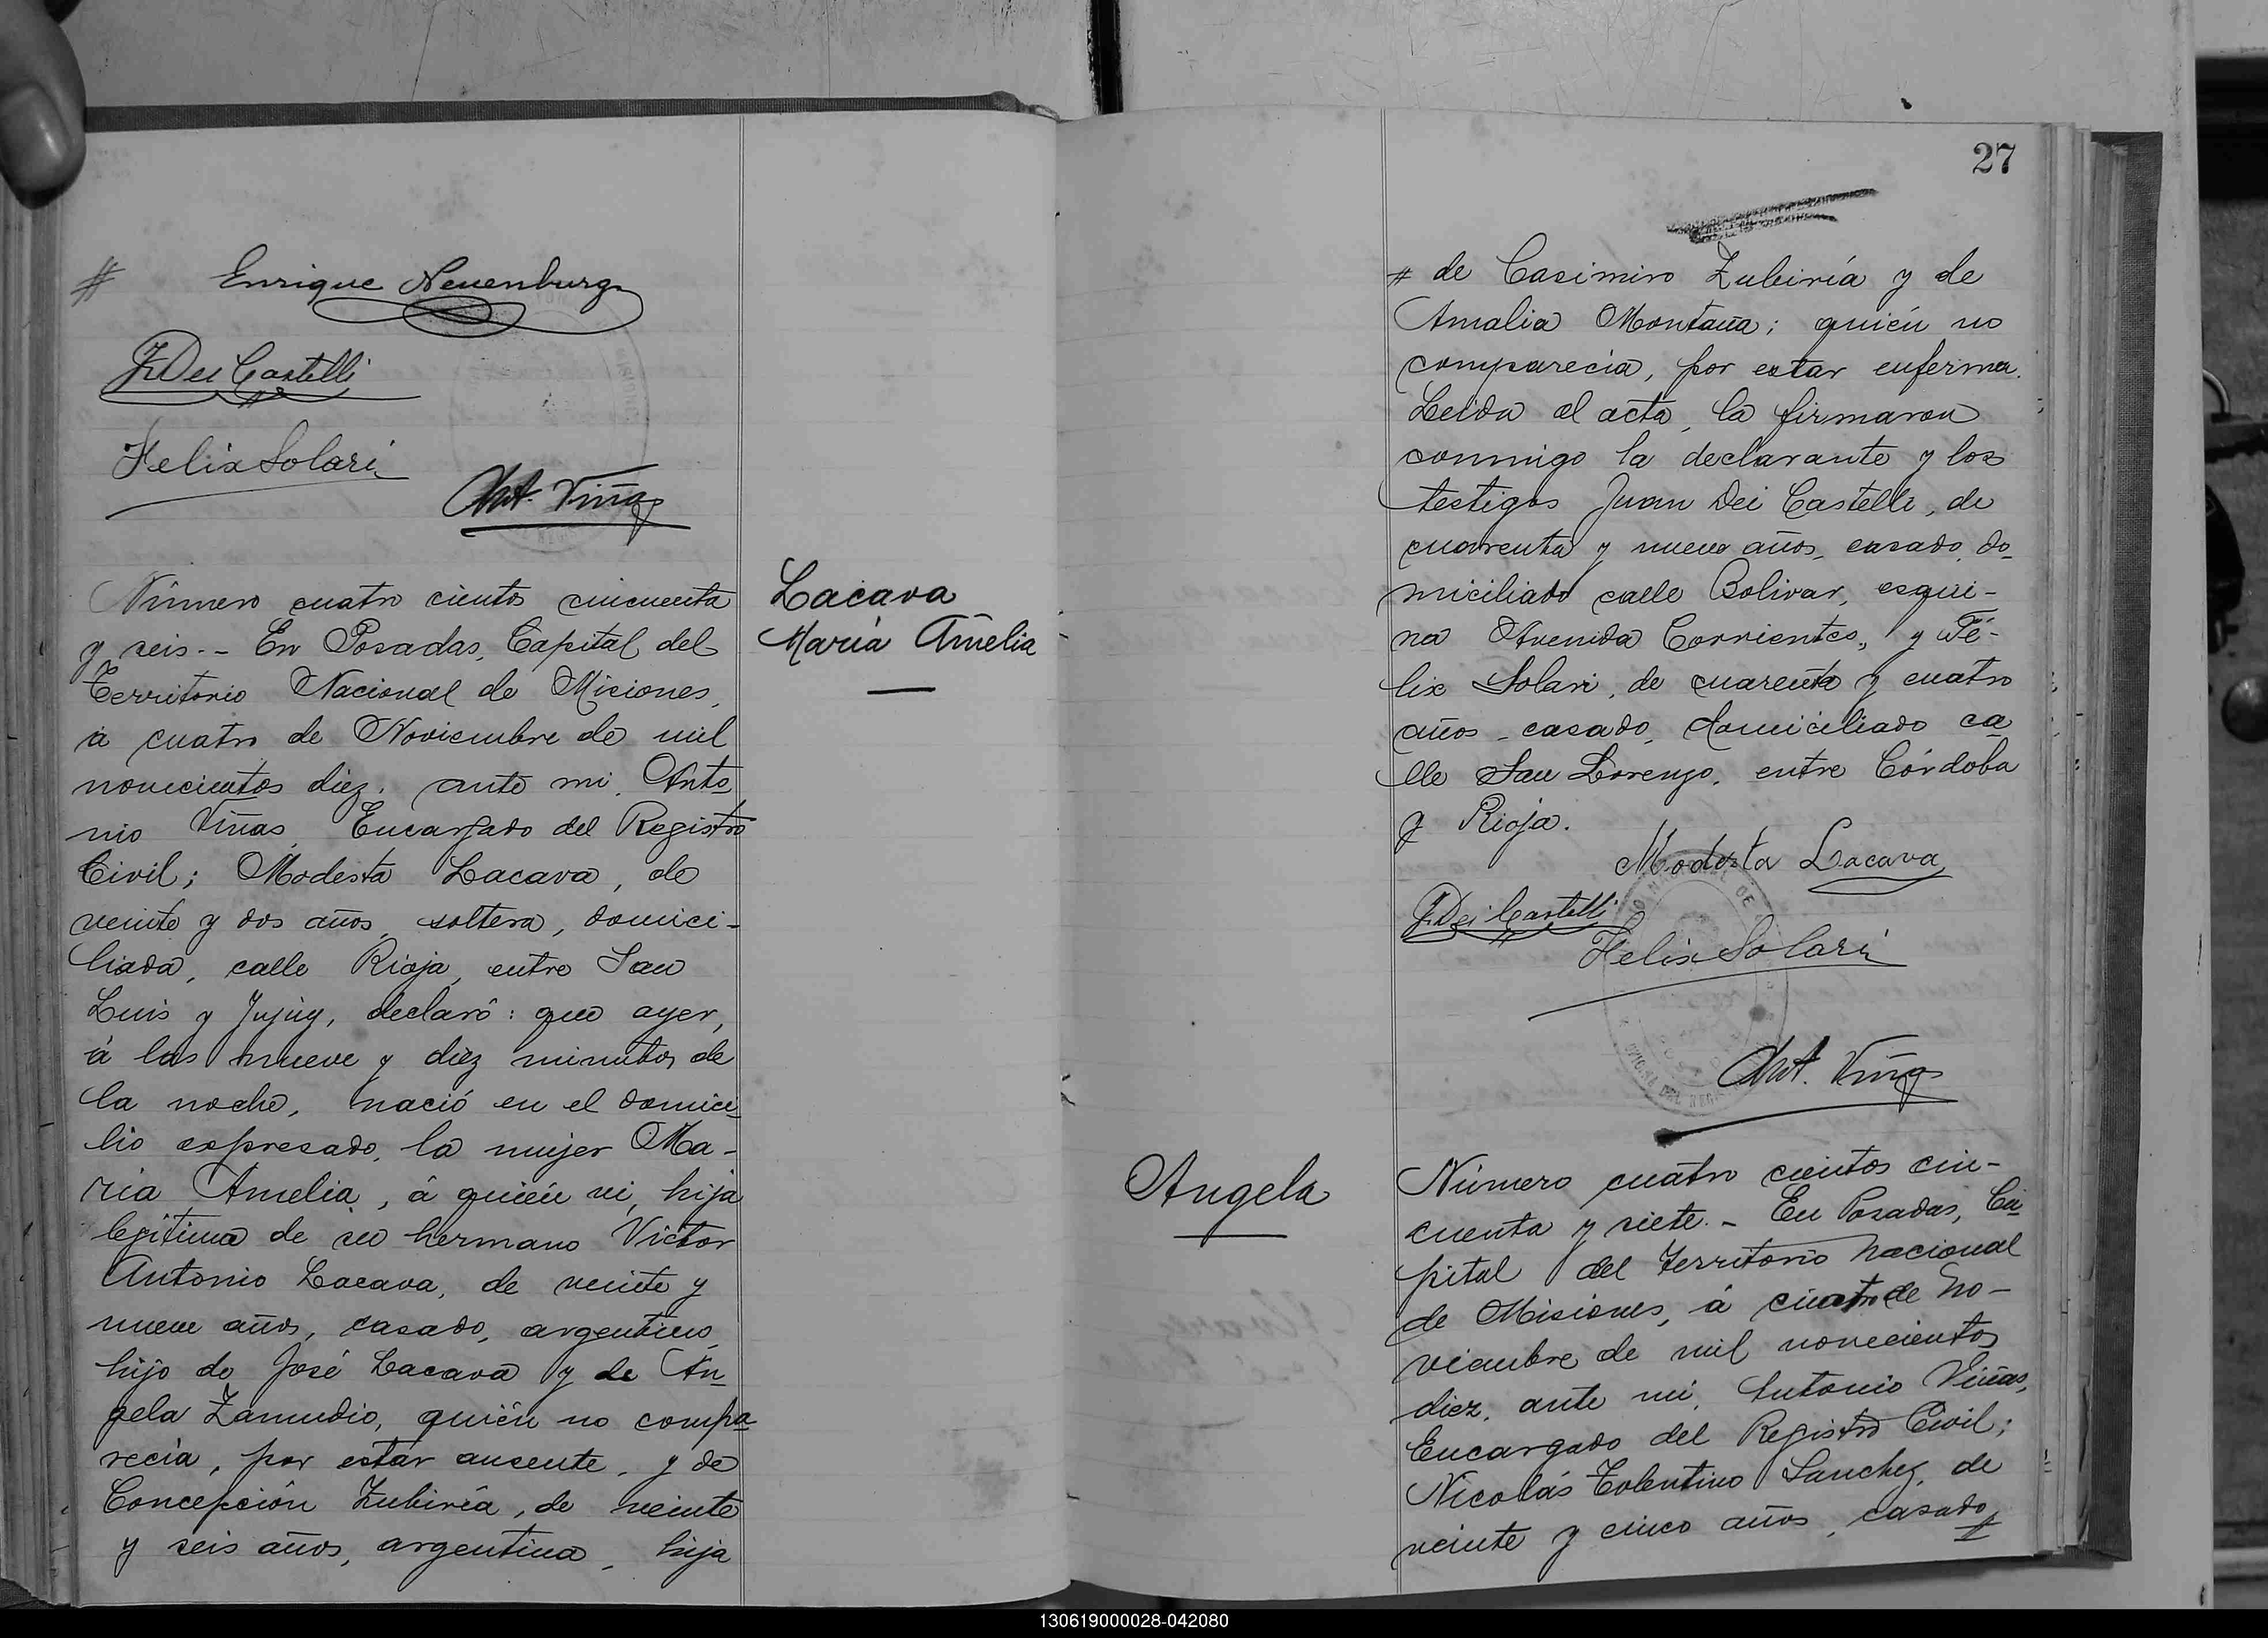 # Enrique Neuenburg
J. Dei Castelli
Felix Solari
Ant. Viñas
Número cuatro cientos cincuenta
y seis.- En Posadas, Capital del
Territorio Nacional de Misiones,
á cuatro de Noviembre de mil
novecientos diez, ante mi, Anto
nio Viñas, Encargado del Registro
Civil; Modesta Lacava, de
veinte y dos años, soltera, domici-
liada, calle Rioja, entre San
Luis y Jujúy, declaró: que ayer,
á las nueve y diez minutos de
la noche, nació en el domici
lio expresado, la mujer Ma-
ria Amelia, á quién vi, hija
legítima de su hermano Victor
Antonio Lacava, de veinte y
nueve años, casado, argentino,
hijo de José Lacava y de An
gela Zamudio, quién no compa
recia, por estar ausente, y de
Concepción Zubiría, de veinte
y seis años, argentina, hija
Lacava
María Amelia
27
# de Casimiro Zubiría y de
Amalia Montaña; quién no
comparecia, por estar enferma.
Leida el acta, la firmaron
conmigo la declarante y los
testigos Juan Dei Castelli, de
cuarenta y nueve años, casado, do
miciliado calle Bolivar, esqui-
na Avenida Corrientes, y Fé-
lix Solari, de cuarenta y cuatro
años, casado, domiciliado ca
lle San Lorenzo, entre Córdoba
y Rioja.
Modesta Lacava
J. Dei Castelli
Felix Solari
Ant. Viñas
Angela
Número cuatro cientos cin-
cuenta y siete.- En Posadas, Ca
pital del Territorio Nacional
de Misiones, á cuatro de No-
viembre de mil novecientos
diez, ante mí, Antonio Viñas,
Encargado del Registro Civil;
Nicolás Tolentino Sanchez, de
veinte y cinco años, casado, #
130619000028-042080